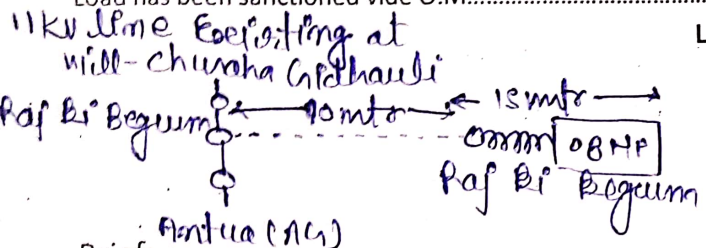 Load has been sanctioned vide O.M.
L
11kv line Eoexisting at
will- churaha Gidhauli
Raj Bi Begum
90mtr
15 mtr
08 HP
Raj Bi Begum
(AG)